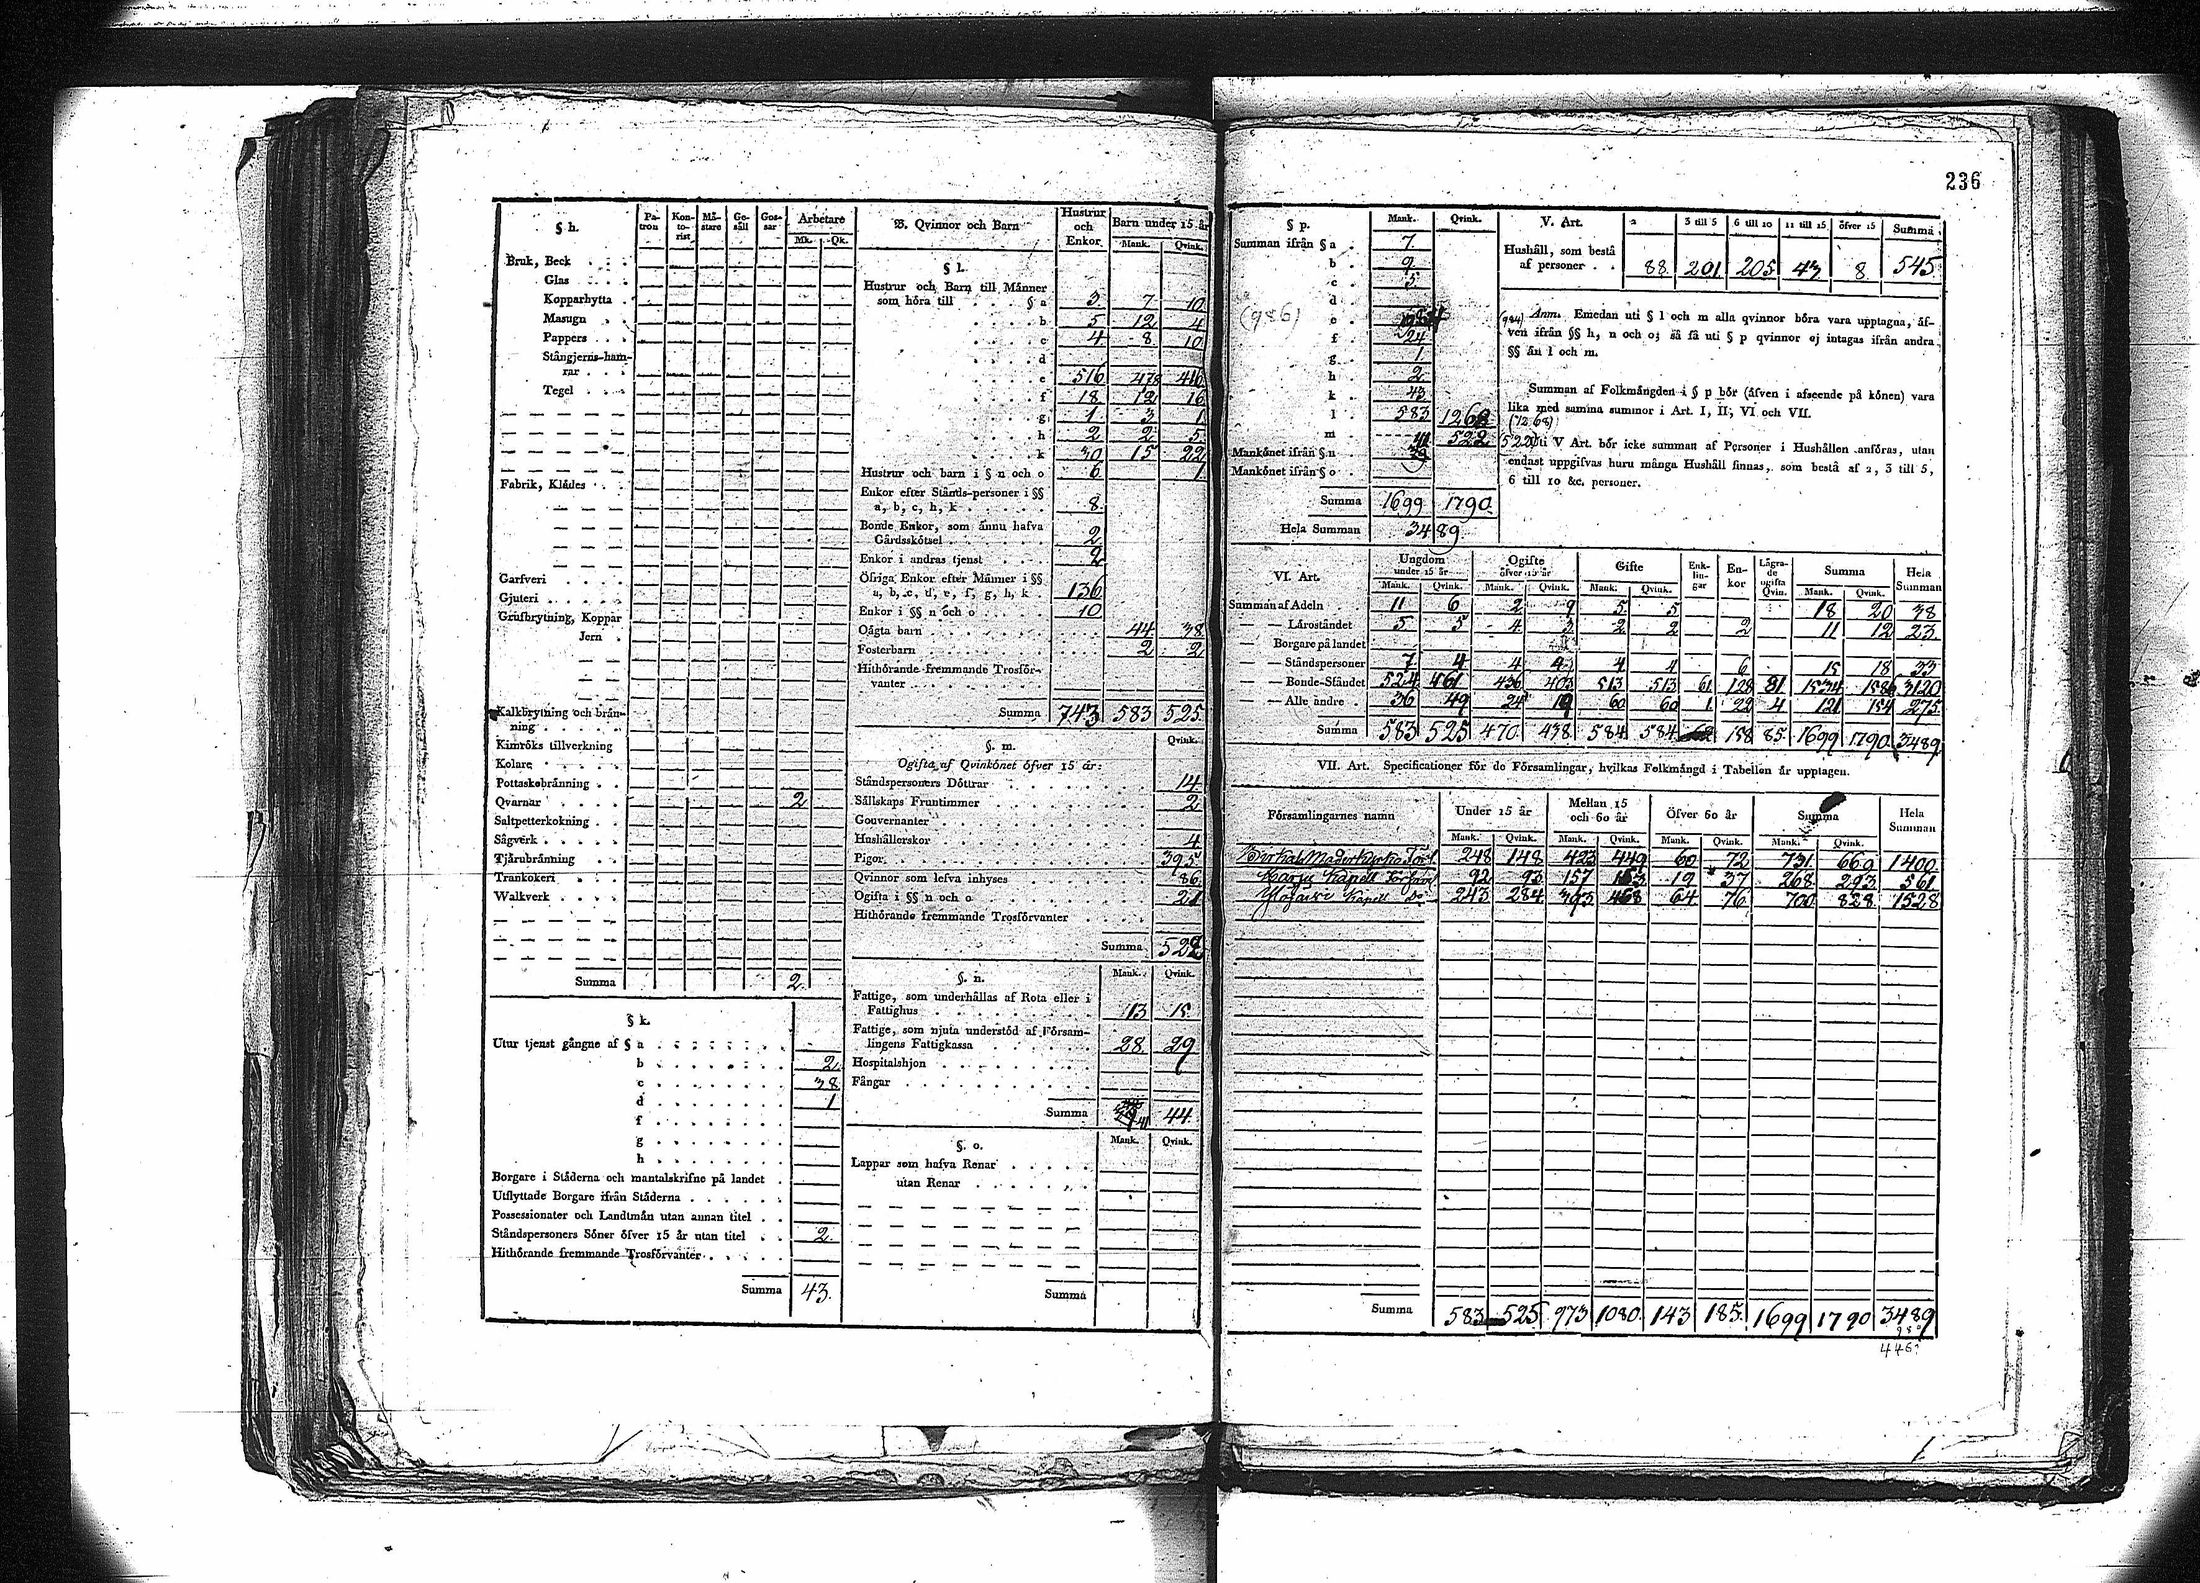 236
§ h.
Pa-
tron
Kon-
to-
rist
Må-
stare
Ge-
såll
Gos-
sar
Arbetare
Mk. Qk.
Bruk, Beck
Glas
Kopparhytta
Masugn
Pappers
Stångjerns-ham-
rar
Tegel
Fabrik, Klådes
Garfveri
Gjuteri
Grufbrytning, Koppar
Jern
Kalkbrytning och brån-
ning
Kimröks tillverkning
Kolare
Pottaskebrånning
Qvarnar 2
Saltpetterkokning
Sågverk
Tjårubrånning
Trankokeri
Walkverk
Summa 2.
§ k.
Utur tjenst gångne af § a
b 2.
c 38
d 1
f
g
h
Borgare i Ståderna och mantalskrifne på landet
Utflyttade Borgare ifrån Ståderna
Possessionater och Landtmån utan annan titel
Ståndspersoners Söner öfver 15 år utan titel 2.
Hithörande fremmande Trosförvanter
Summa 43.
B. Qvinnor och Barn
Hustrur
och
Enkor.
Barn under 15 år
Mank. Qvink.
§ l.
Hustrur och Barn till Månner
som höra till § a 3 7 10
b 5 12 4
c 4 8 10
d
e 516 478 416
f 18 12 16
g 1 3 1
h 2 2 5
k 30 15 22
Hustrur och barn i § n och o 6 1
Enkor efter Stånds-personer i §§
a, b, c, h, k 8
Bonde Enkor, som ånnu hafva
Gårdsskötsel 2
Enkor i andras tjenst 2
Öfriga Enkor efter Månner i §§
a, b, c, d, e, f, g, h, k 136
Enkor i §§ n och o 10
Oågta barn 44 38
Fosterbarn 2 2
Hithörande fremmande Trosför-
vanter
Summa 743 583 525
§. m.
Qvink.
Ogifta af Qvinkönet öfver 15 år:
Ståndspersoners Döttrar 14
Sållskaps Fruntimmer 2
Gouvernanter
Hushållerskor 4
Pigor 395
Qvinnor som lefva inhyses 86
Ogifta i §§ n och o 21
Hithörande fremmande Trosförvanter
Summa 522
§. n.
Mank. Qvink.
Fattige, som underhållas af Rota eller i
Fattighus 13 15
Fattige, som njuta understöd af Försam-
lingens Fattigkassa 28 29
Hospitalshjon
Fångar
Summa 41 44
§. o.
Mank. Qvink.
Lappar som hafva Renar
utan Renar
Summa
§ p.
Mank. Qvink.
Summan ifrån § a 7.
b 9
c 5
d
(986)
e
f 24
g 1
h 2
k 43
l 583 1268
m 522
Mankönet ifrån § n
Mankönet ifrån § o
Summa 1699 1790
Hela Summan 3489
V. Art.
2 3 till 5 6 till 10 11 till 15 öfver 15 Summa
Hushåll, som bestå
af personer 88 201 205 43 8 545
(984) Anm. Emedan uti § l och m alla qvinnor böra vara upptagna, åf-
ven ifrån §§ h, n och o; så få uti § p qvinnor ej intagas ifrån andra
§§ ån l och m.
Summan af Folkmångden i § p bör (åfven i afseende på könen) vara
lika med samma summor i Art. I, II, VI och VII.
(1268)
(522) Uti V Art. bör icke summan af Personer i Hushållen anföras, utan
endast uppgifvas huru många Hushåll finnas, som bestå af 2, 3 till 5,
6 till 10 &c. personer.
VI. Art.
Ungdom
under 15 år
Ogifte
öfver 15 år
Gifte
Enk-
lin-
gar
En-
kor
Lågra-
de
ogifta
Qvin.
Summa
Hela
Summan
Mank. Qvink. Mank. Qvink. Mank. Qvink. Mank. Qvink.
Summan af Adeln 11 6 2 9 5 5 18 20 38
— — Låroståndet 5 5 4 3 2 2 2 11 12 23
— Borgare på landet
— — Ståndspersoner 7 4 4 4 4 6 15 18 33
— — Bonde-Ståndet 524 461 436 403 513 513 61 128 81 1534 1586 3120
— — Alle andre 36 49 24 19 60 60 1 22 4 121 154 275
Summa 583 525 470 438 584 584 62 158 85 1699 1790 3489
VII. Art. Specificationer för de Församlingar, hvilkas Folkmångd i Tabellen år upptagen.
Församlingarnes namn
Under 15 år
Mellan 15
och 60 år
Öfver 60 år
Summa
Hela
Summan
Mank. Qvink. Mank. Qvink. Mank. Qvink. Mank. Qvink.
Birkala Moderkyrko Förs. 248 148 423 449 60 72 731 669 1400
Harju Kapell Församl. 92 93 157 163 19 37 268 293 561
Ylöjärvi Kapell Do 243 284 393 468 64 76 700 828 1528
Summa 583 525 973 1080 143 185 1699 1790 3489